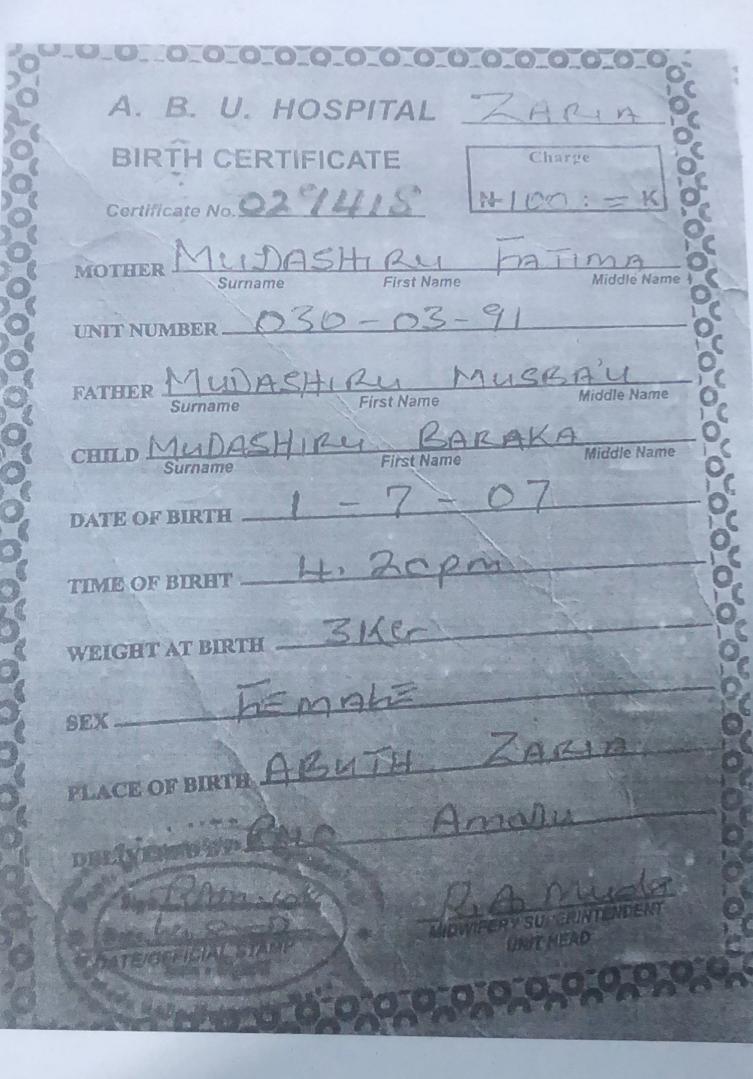 A. B. U. HOSPITAL ZARIA
BIRTH CERTIFICATE
Charge
Certificate No. 027415
₦ 100 : = K
MOTHER MUDASHIRU FATIMA
Surname First Name Middle Name
UNIT NUMBER 030-03-91
FATHER MUDASHIRU MUSBA'U
Surname First Name Middle Name
CHILD MUDASHIRU BARAKA
Surname First Name Middle Name
DATE OF BIRTH 1 - 7 - 07
TIME OF BIRHT 4. 20pm
WEIGHT AT BIRTH 3Kg
SEX FEMALE
PLACE OF BIRTH ABUTH ZARIA
Amadu
DATE/OFFICIAL STAMP
MIDWIFERY SUPERINTENDENT
UNIT HEAD